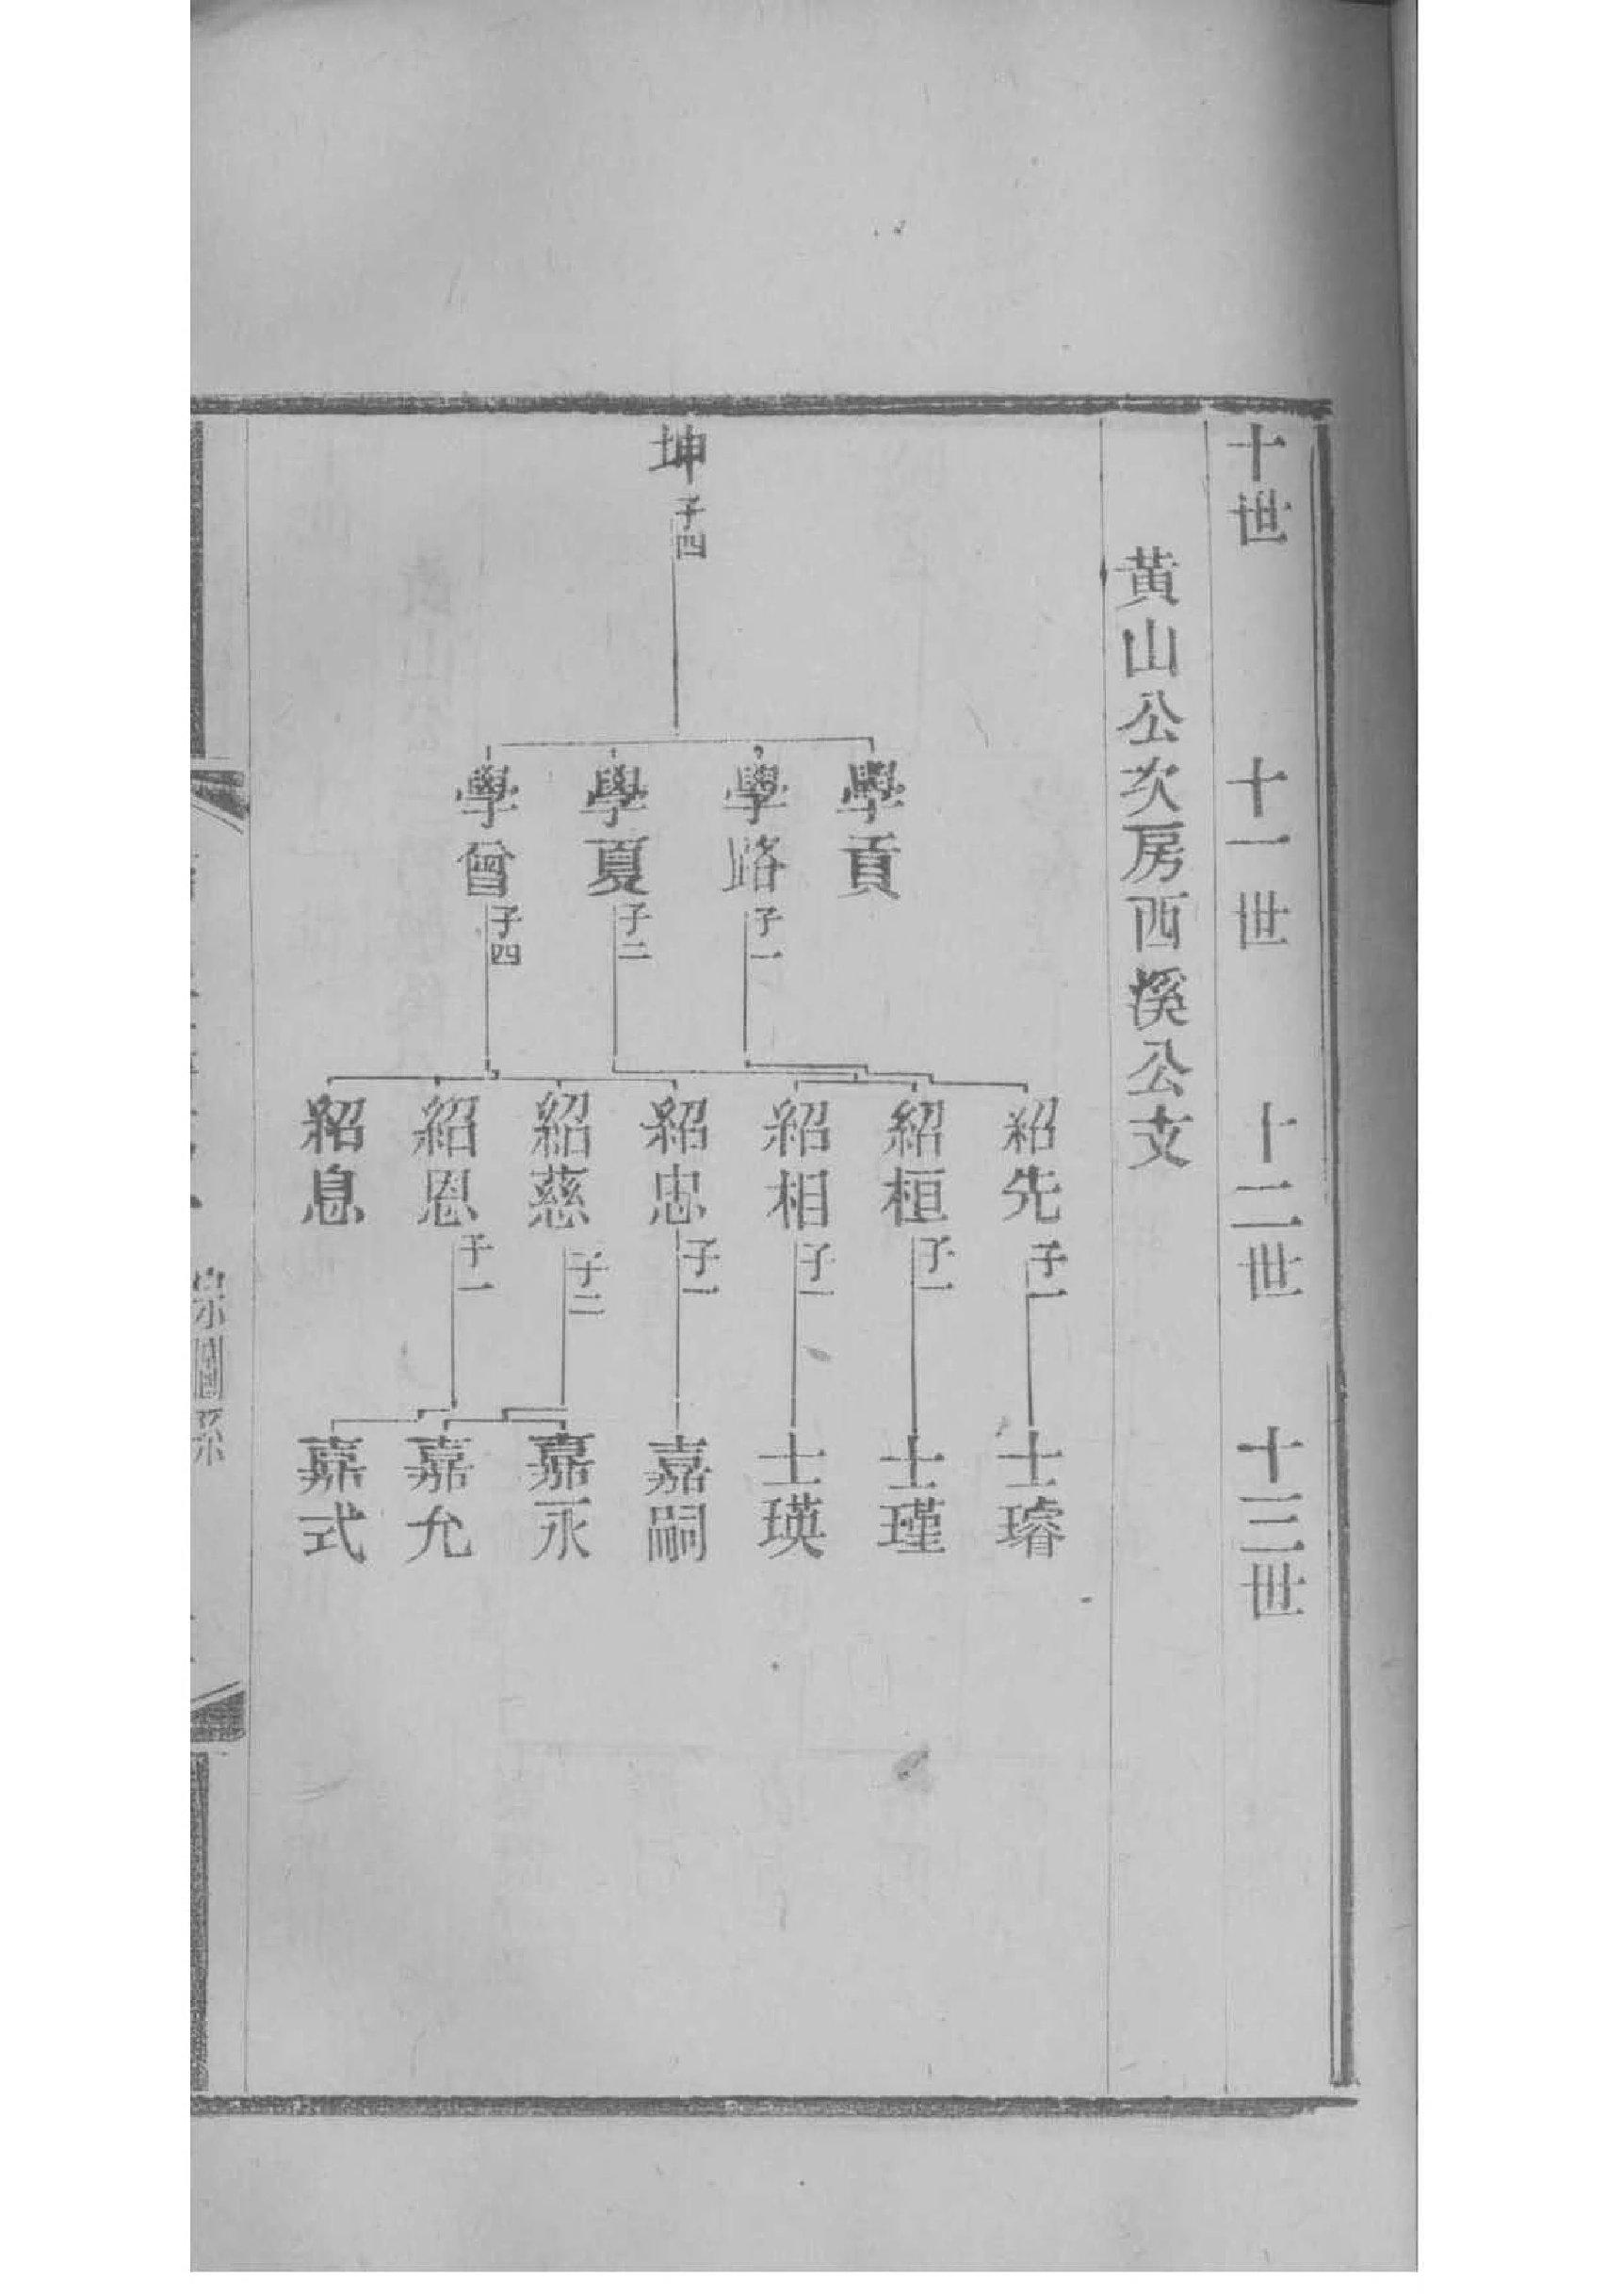 十世
十一世
十二世
十三世
黃山公次房西溪公支
坤子四
學貢
學路子一
學夏子二
學曾子四
紹先子一
紹桓子一
紹相子一
紹忠子一
紹慈子二
紹恩子一
紹息
士璿
士瑾
士瑛
嘉嗣
嘉永
嘉允
嘉式